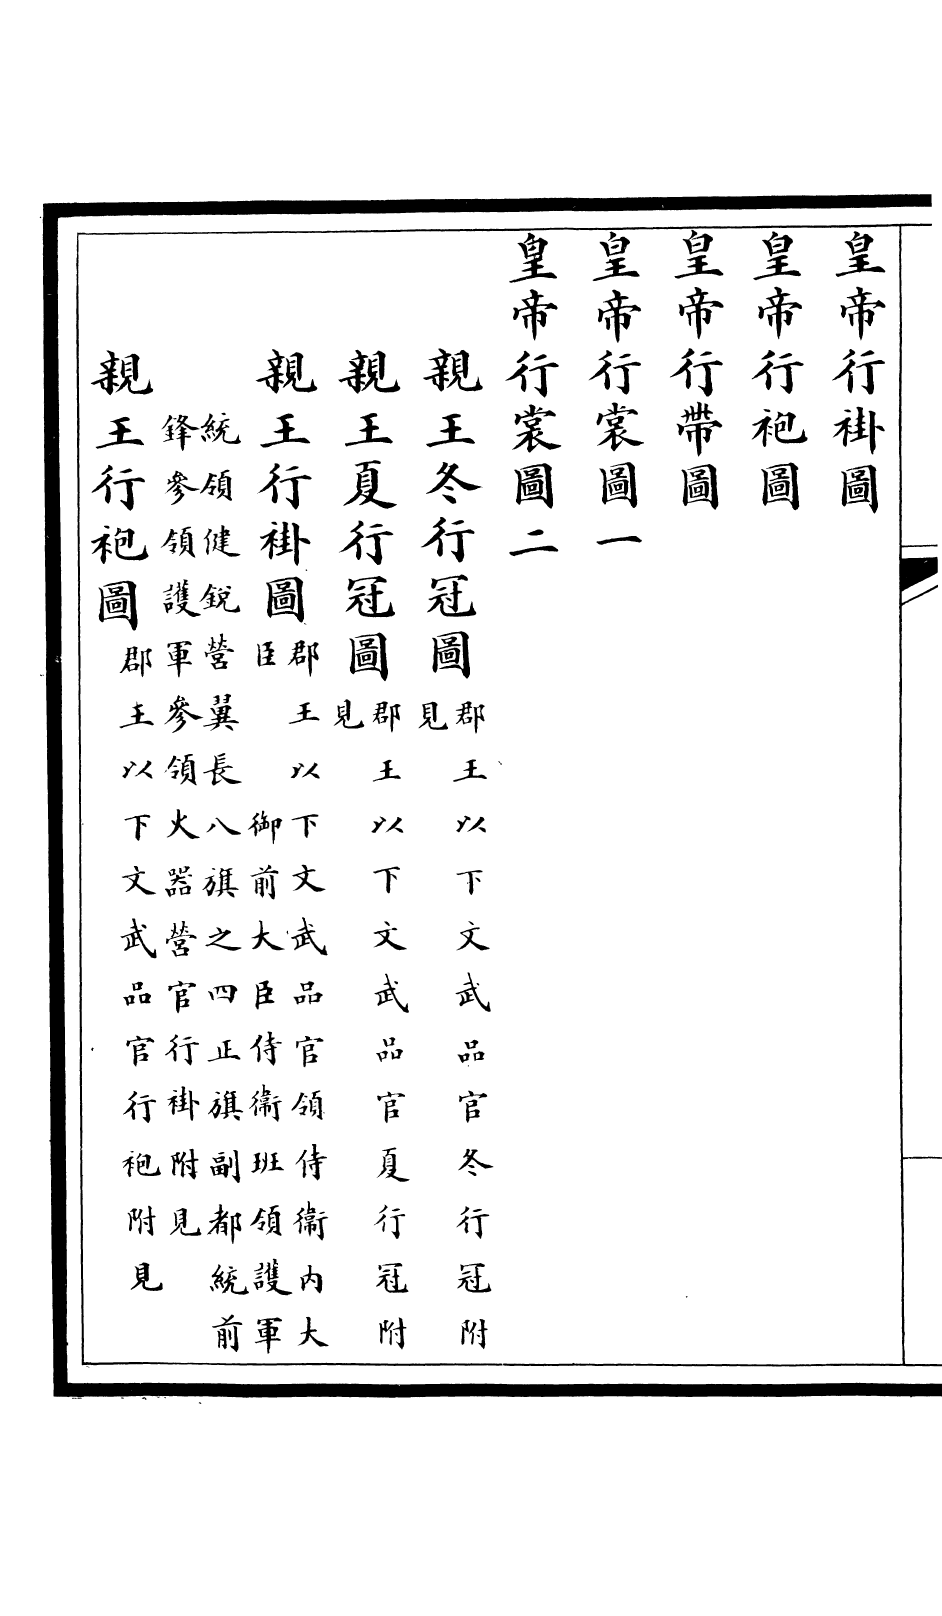 皇帝行褂圖
皇帝行袍圖
皇帝行帶圖
皇帝行裳圖一
皇帝行裳圖二
親王冬行冠圖郡王以下文武品官冬行冠附
見
親王夏行冠圖郡王以下文武品官夏行冠附
見
親王行褂圖郡王以下文武品官領侍衞内大
臣　御前大臣侍衞班領護軍
統領健銳營翼長八旗之四正旗副都統前
鋒參領護軍參領火器營官行褂附見
親王行袍圖郡王以下文武品官行袍附見